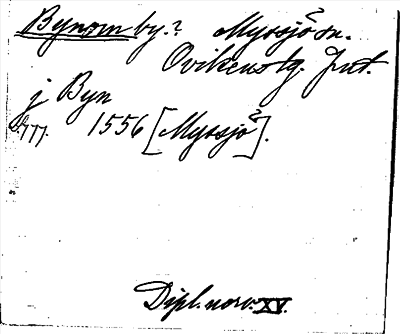 Bynom by.? Myssjö? sn.
Ovikens tg. Jmt.
j Byn
S. 177. 1556 [Myssjö?].
Dipl. norv. XV.